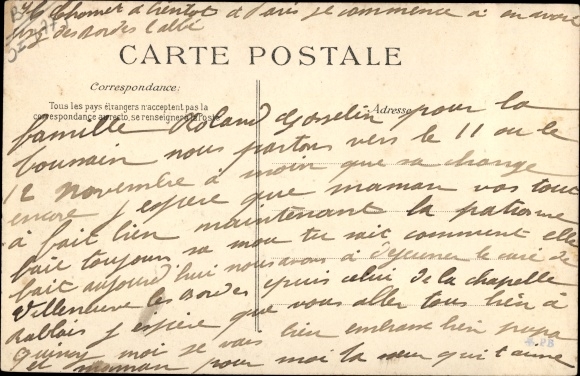 à bientot à Paris je commence à en avoir
des Bordes l'abé
CARTE POSTALE
Correspondance:
Tous les pays étrangers n'acceptent pas la
correspondance au recto, se renseigner à la Poste
Adresse
famille Roland Gosselin pour la
toussain nous partons vers le 11 ou le
12 novembre à moin que sa change
encore j espère que maman vas tout
à fait bien maintenant la patronne
fait toujours sa mou tu sait comment elle
fait aujourd'hui nous avons à déjeuner le curé de
Villeneuve les Bordes puis celui de la chapelle
Rablais j espère que vous aller tous bien à
Quincy moi je vais bien embrasse bien papa
et maman pour moi ta sœur qui t'aime